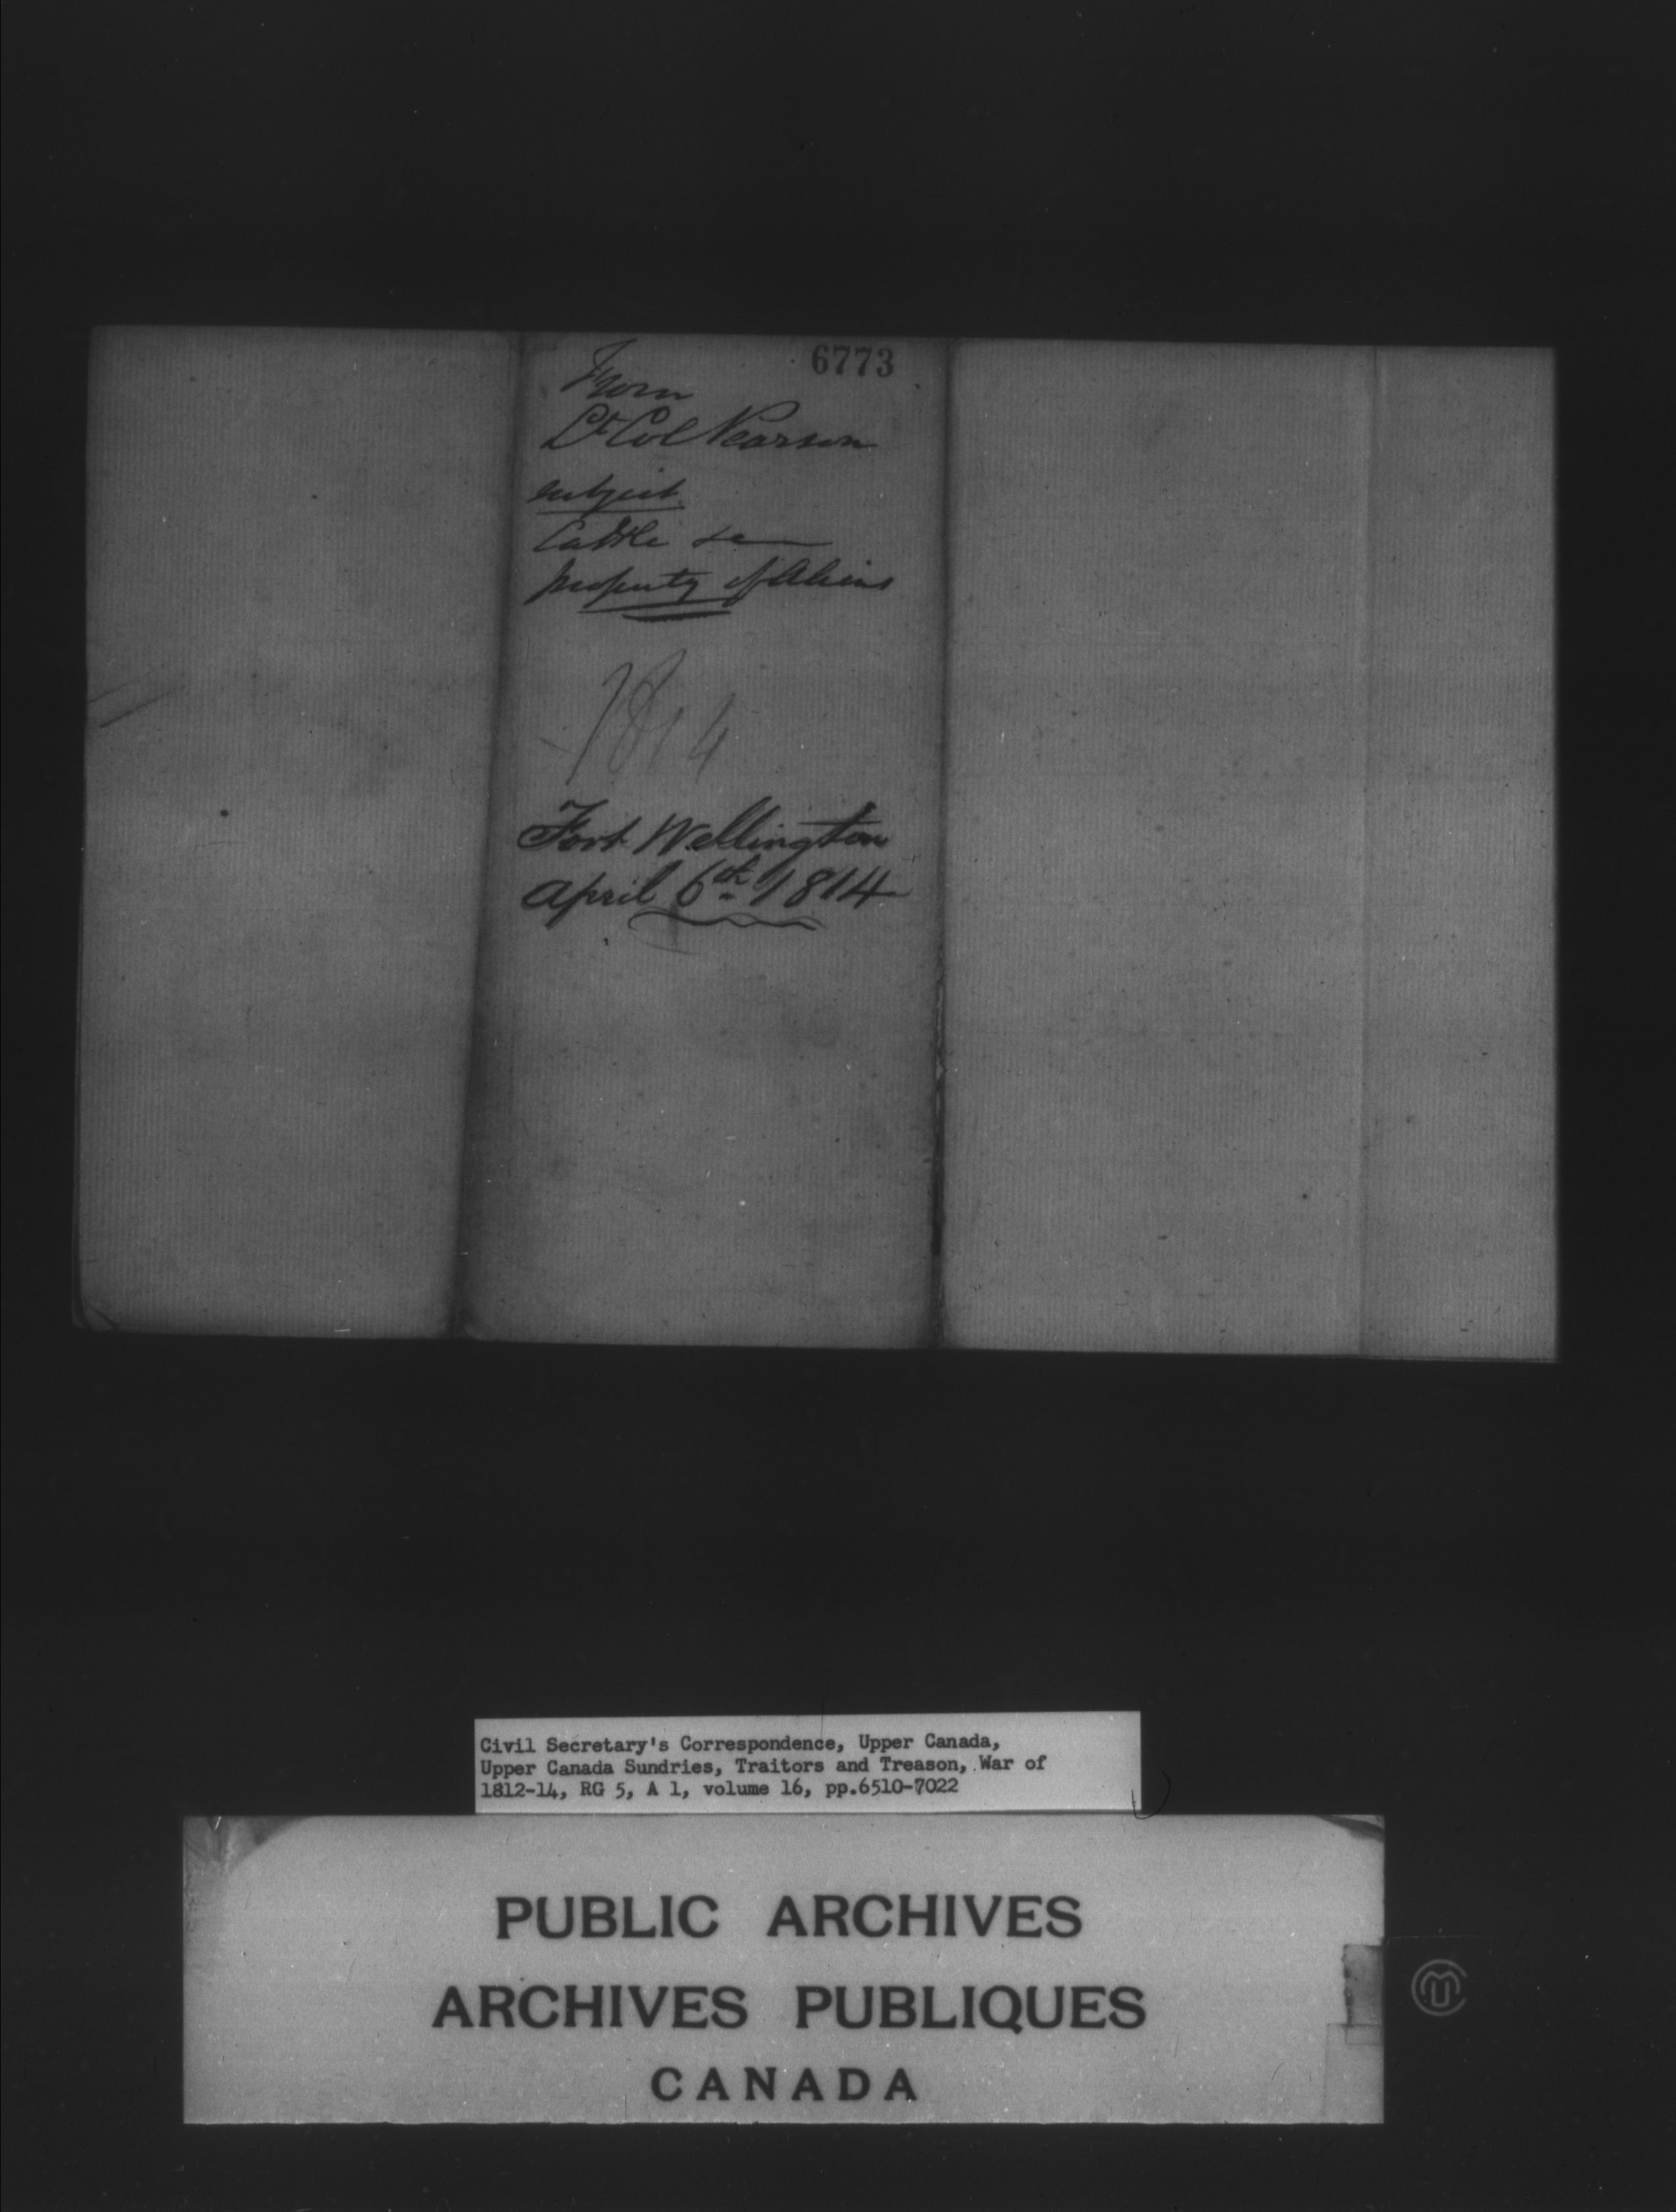 6773
From
Lt Col Pearson
subject
Cattle &c
property of Aliens
1814
Fort Wellington
April 6th 1814
Civil Secretary's Correspondence, Upper Canada,
Upper Canada Sundries, Traitors and Treason, War of
1812-14, RG 5, A 1, volume 16, pp.6510-7022
PUBLIC ARCHIVES
ARCHIVES PUBLIQUES
CANADA